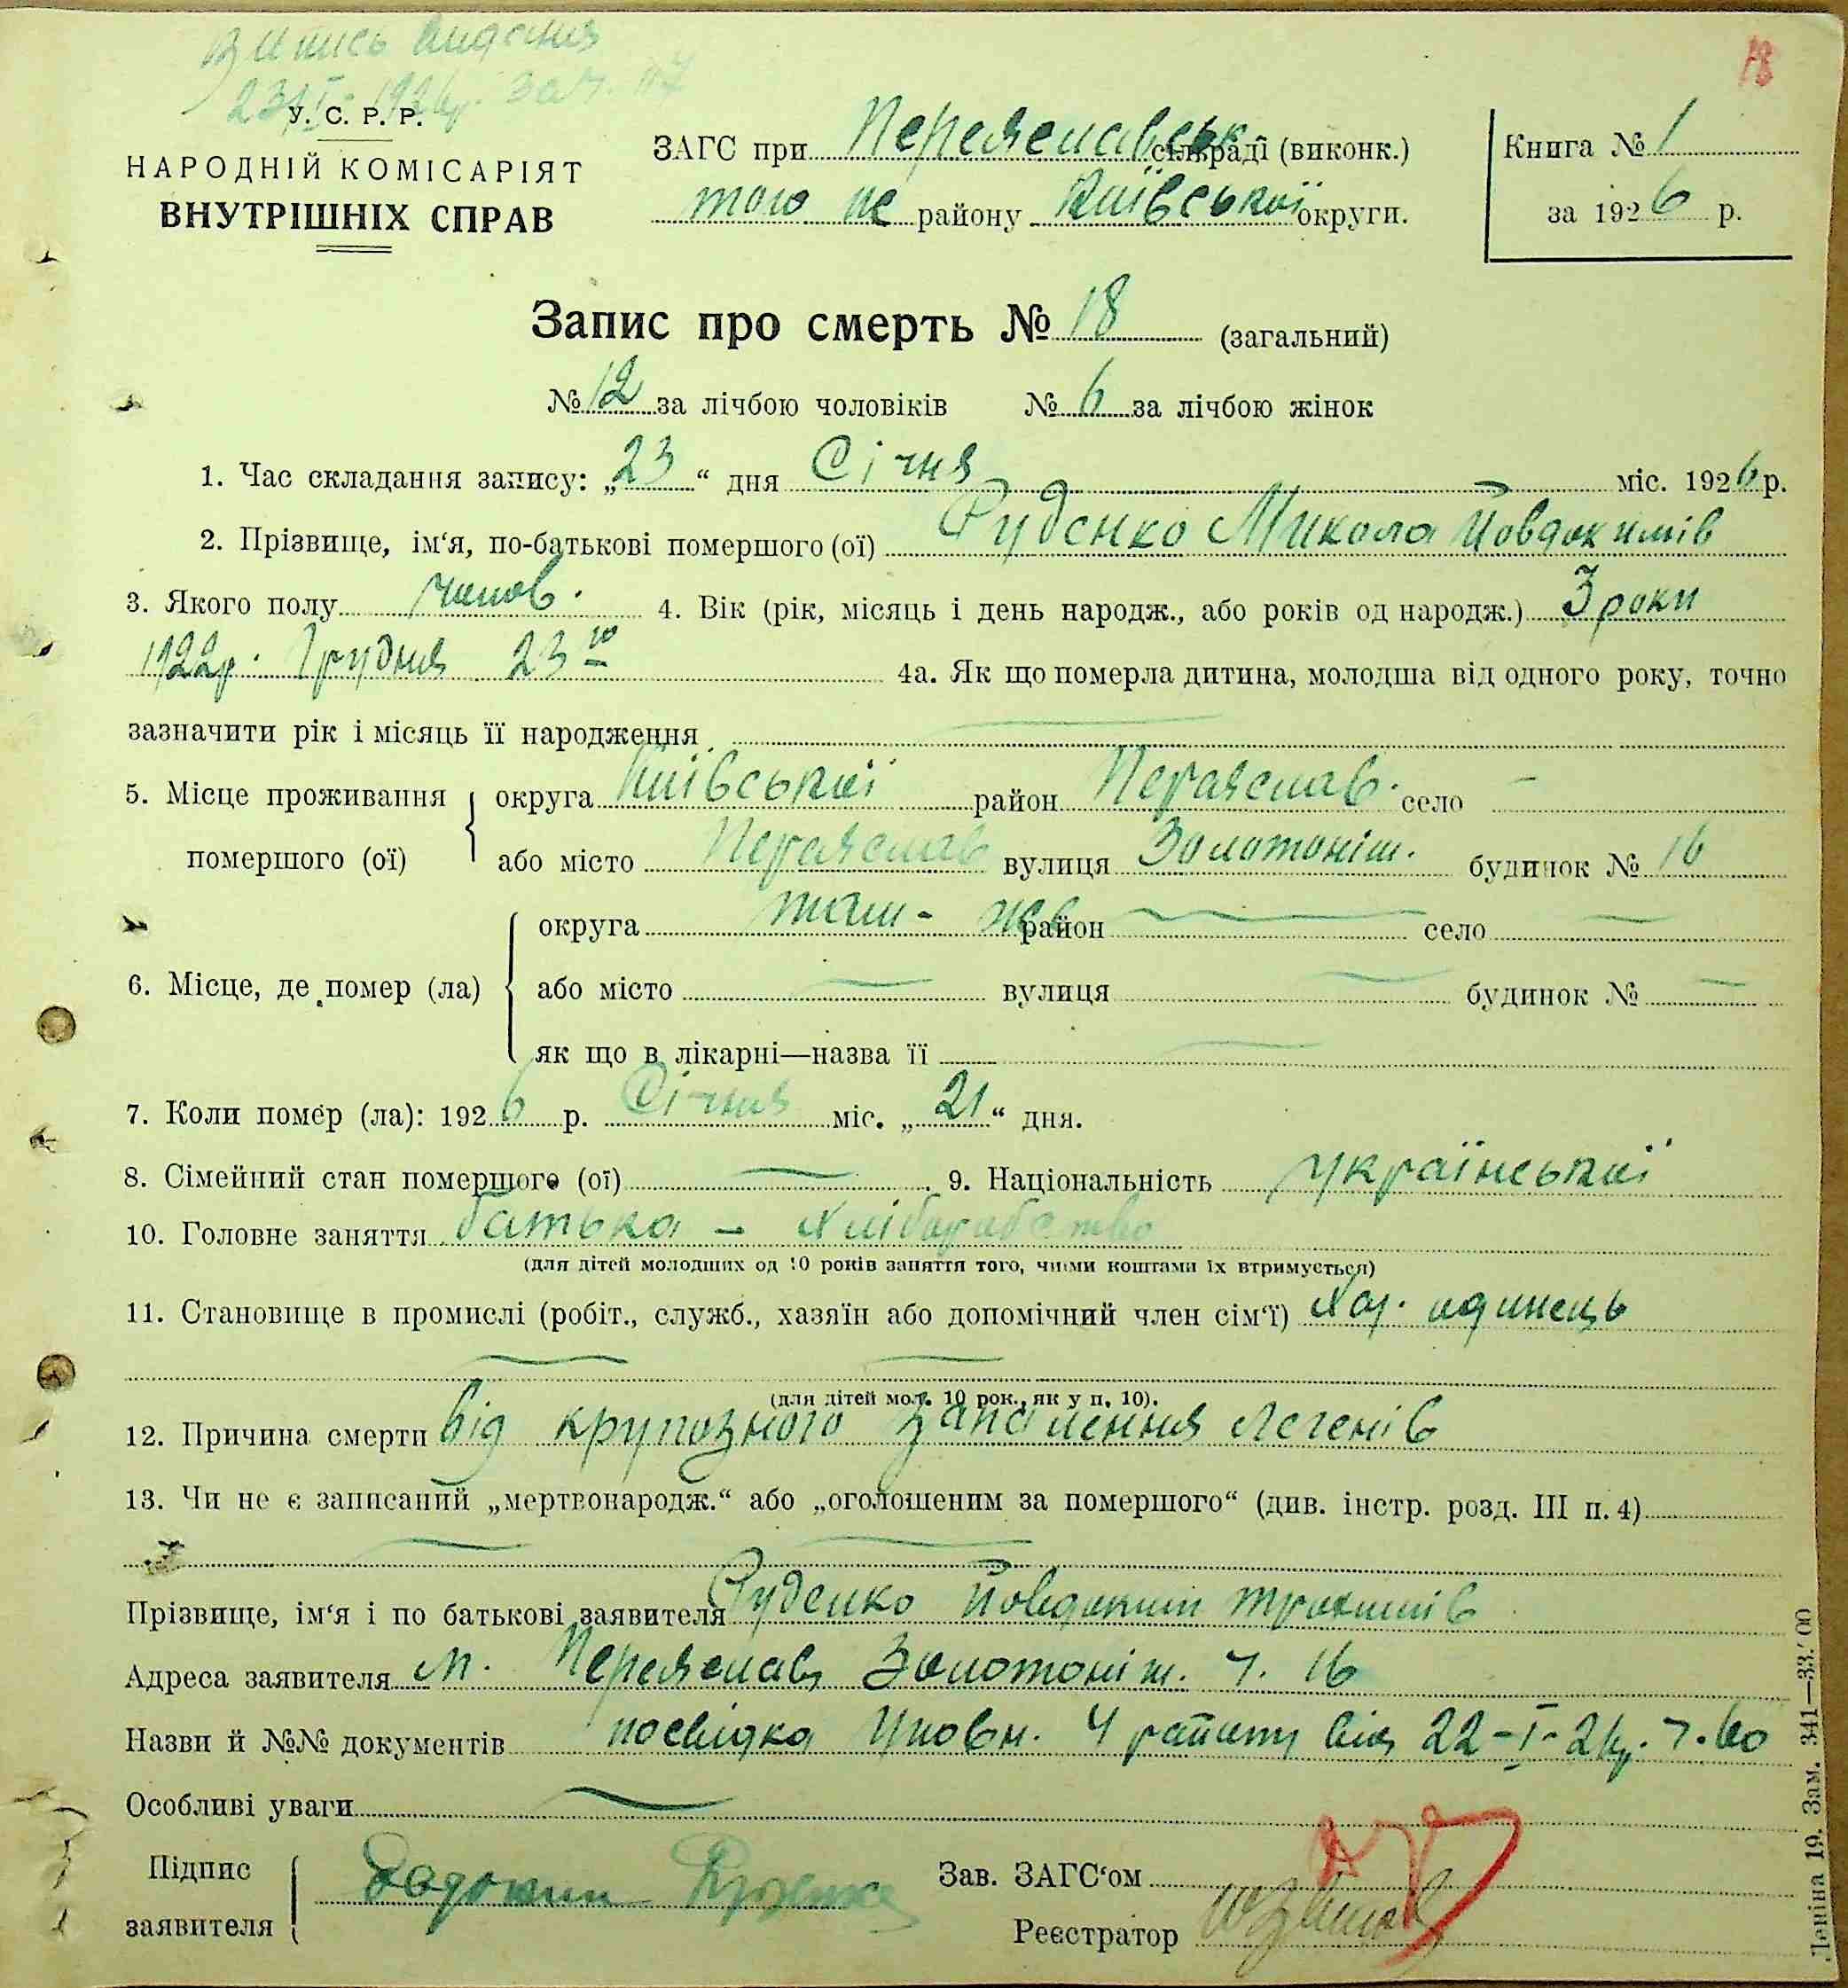 Випись видана
18
23/I 1926р. зач. №7
У. С. Р. Р.
НАРОДНІЙ КОМІСАРІЯТ
ВНУТРІШНІХ СПРАВ
ЗАГС при Переяславськ сільраді (виконк.)
того же району Київської округи.
Книга № 1
за 1926 р.
Запис про смерть № 18 (загальний)
№ 12 за лічбою чоловіків № 6 за лічбою жінок
1. Час складання запису: „23“ дня Січня міс. 1926 р.
2. Прізвище, ім‘я, по-батькові помершого (ої) Руденко Микола Йовдокимів
3. Якого полу чолов. 4. Вік (рік, місяць і день народж., або років од народж.) 3 роки
1922р. Грудня 23го 4а. Як що померла дитина, молодша від одного року, точно
зазначити рік і місяць її народження
5. Місце проживання помершого (ої) округа Київської район Переяслав. село —
або місто Переяслав вулиця Золотоніш. будинок № 16
6. Місце, де помер (ла) округа там - же район село
або місто вулиця будинок №
як що в лікарні—назва її
7. Коли помер (ла): 1926 р. Січня міс. „21“ дня.
8. Сімейний стан помершого (ої) 9. Національність української
10. Головне заняття батька - хліборобство
(для дітей молодших од 10 років заняття того, чиїми коштами їх втримується)
11. Становище в промислі (робіт., служб., хазяїн або допомічний член сім‘ї) хаз. одинець
(для дітей мол. 10 рок., як у п. 10).
12. Причина смерти від крупозного запалення легенів
13. Чи не є записаний „мертвонародж.“ або „оголошеним за помершого“ (див. інстр. розд. III п. 4)
Прізвище, ім‘я і по батькові заявителя Руденко Йовдоким Трохимів
Адреса заявителя м. Переяслав Золотоніш. ч. 16
Назви й №№ документів посвідка Уповн. 4 району від 22-I-26р. ч. 60
Особливі уваги
Підпис заявителя Руденко
Зав. ЗАГС‘ом
Реєстратор
Леніна 19. Зам. 341—33.